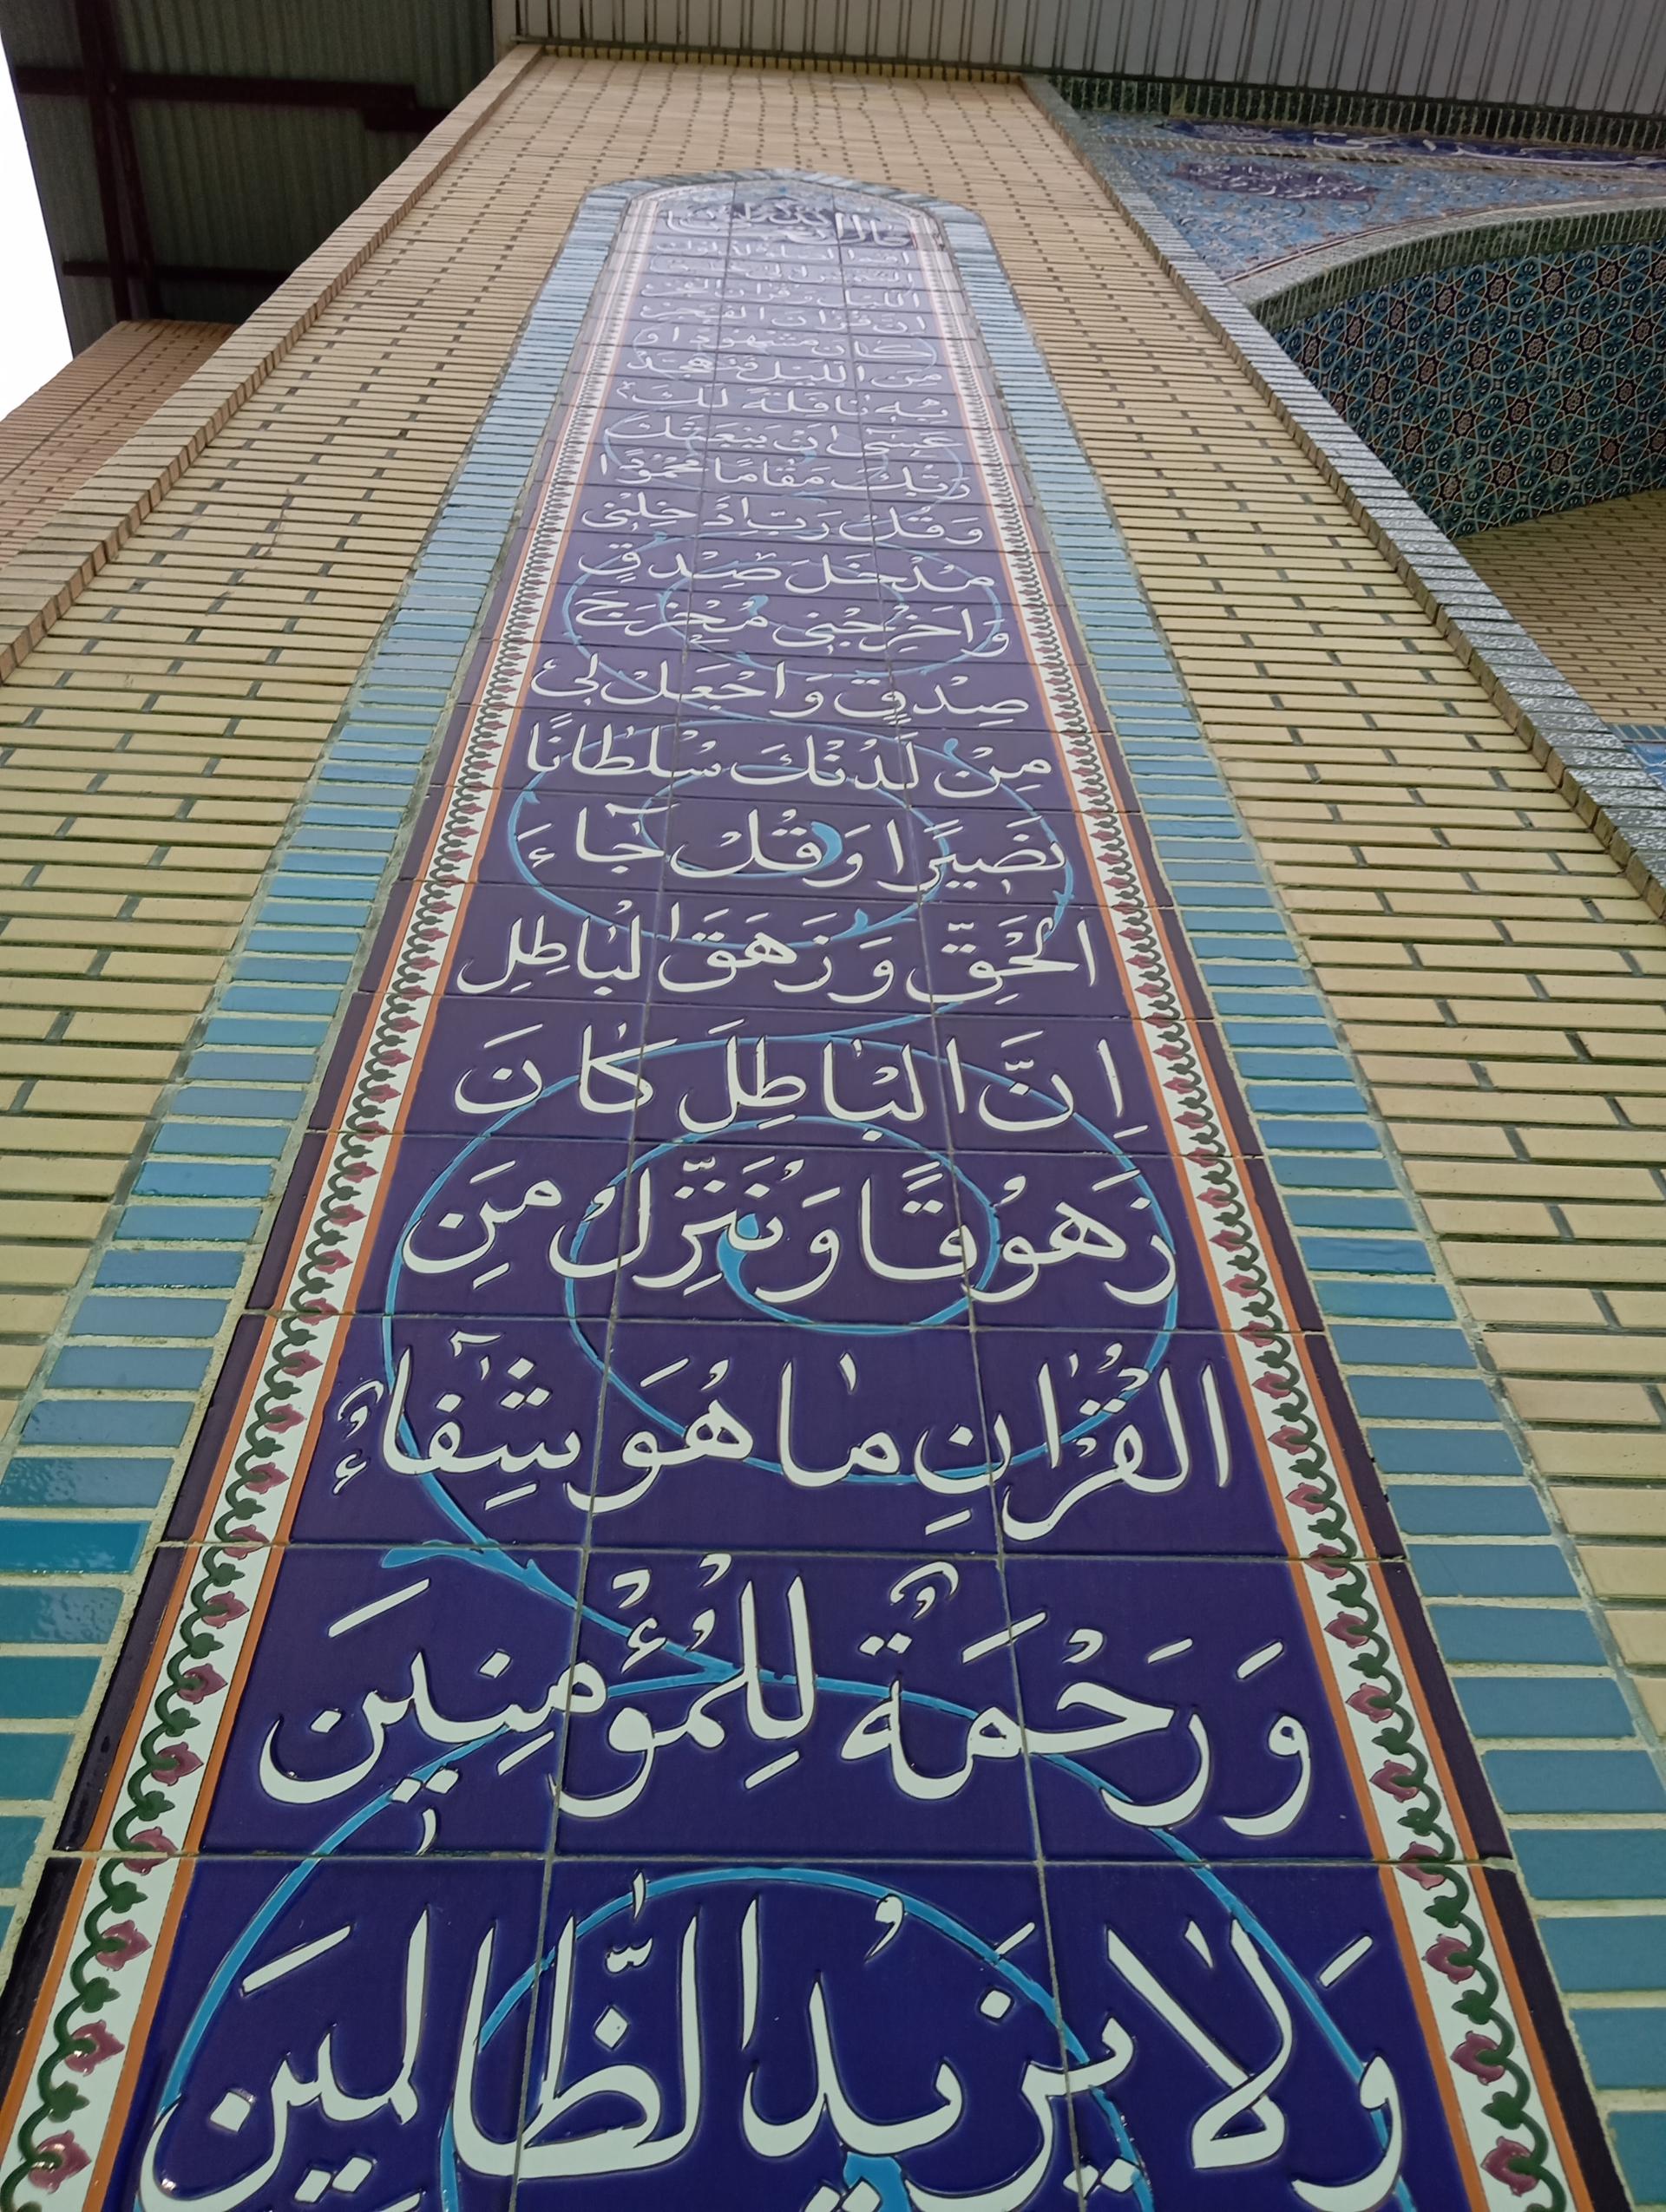 قال الله تعالى
اقم الصلوة لدلوك
الشمس الى غسق
الليل و قران الفجر
ان قران الفجر
كان مشهودا و
من الليل فتهجد
بِه نافلة لك
عسى ان يبعثك
ربك مقاما محمودًا
وَ قُل رَبِّ ادخِلنى
مُدخَلَ صِدقٍ
وَ اَخرِجنى مُخْرَجَ
صِدقٍ وَ اجْعَل لى
مِنْ لَدُنْكَ سُلْطانًا
نَصيرًا وَ قُلْ جآءَ
الْحَقّ وَ زَهَقَ الْباطِل
اِنَّ الْباطِلَ كانَ
زَهُوقًا وَ نُنَزِّل مِنَ
الْقُرْانِ ما هُوَ شِفآءٌ
وَ رَحْمَةٌ لِلْمُؤْمِنِينَ
وَ لا يَزيدُ الظّالِمينَ